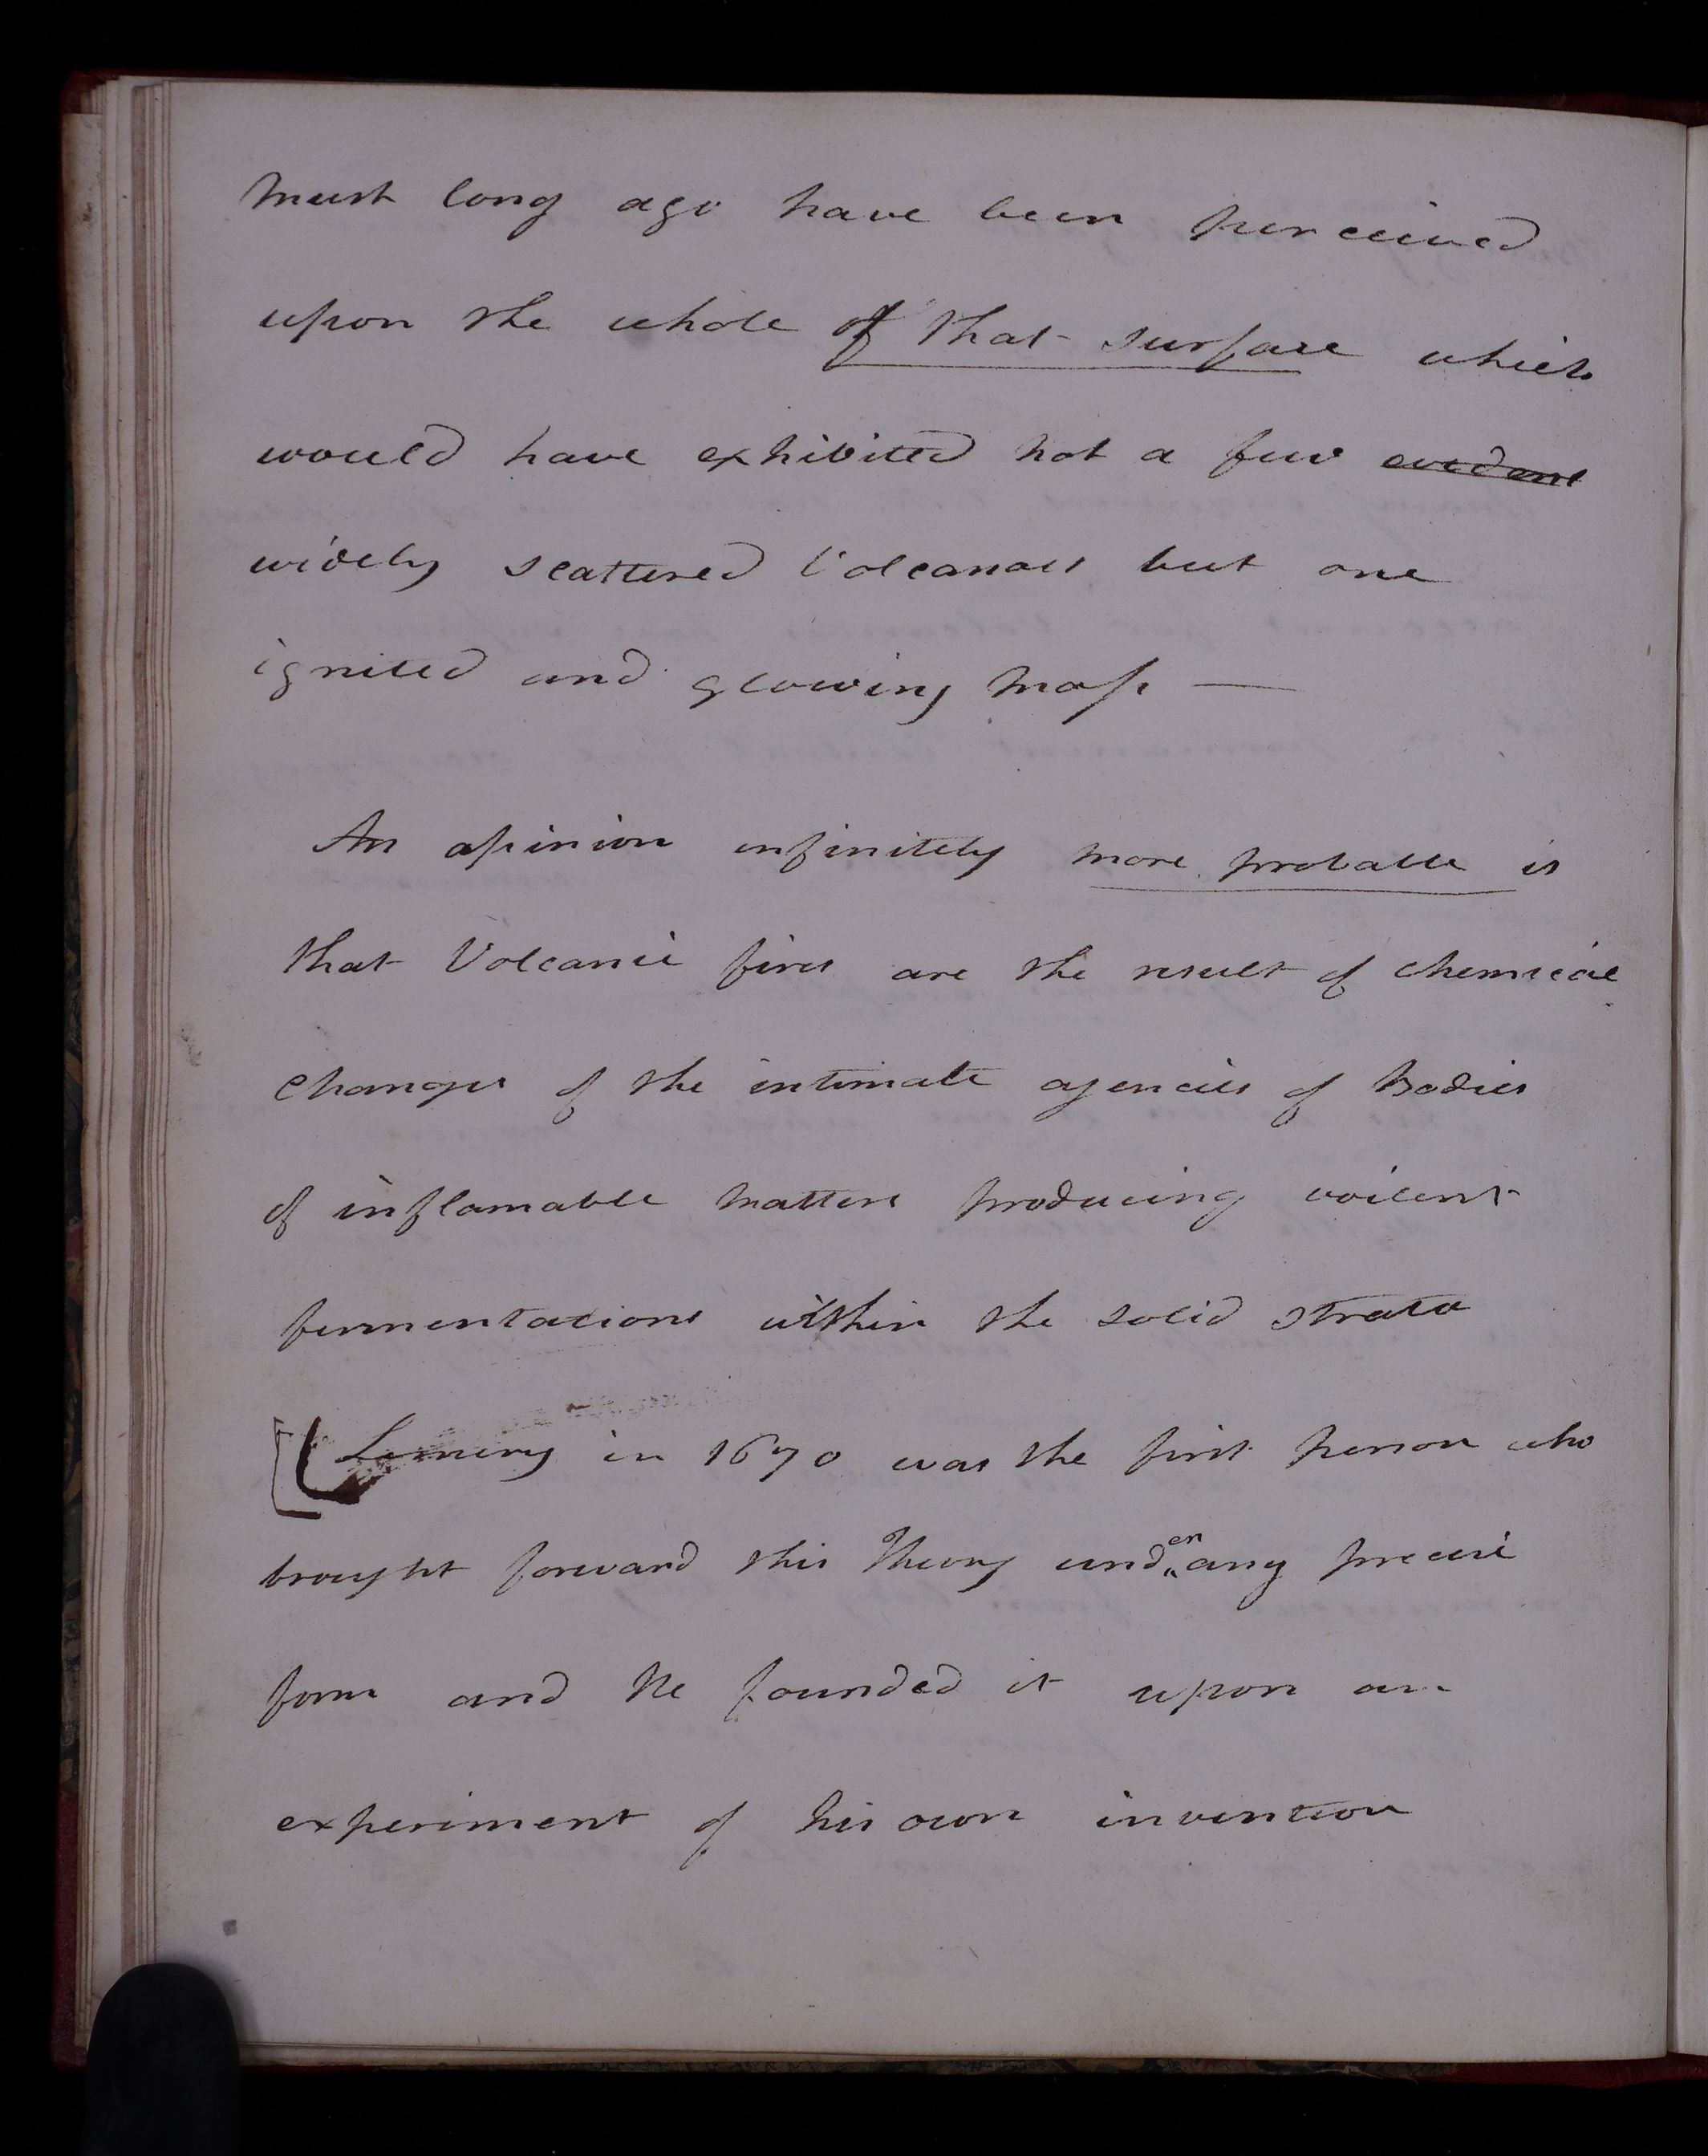 must long ago have been perceived
upon the whole of that surface which
would have exhibited not a few evident
widely scattered Volcanoes but one
ignited and glowing mass —
An opinion infinitely more probable is
that Volcanic fires are the result of chemical
changes of the intimate agencies of Bodies
of inflamable matters producing voilent
fermentations within the solid strata
[ Lemery in 1670 was the first person who
brought forward this Theory under any precise
form and he founded it upon an
experiment of his own invention